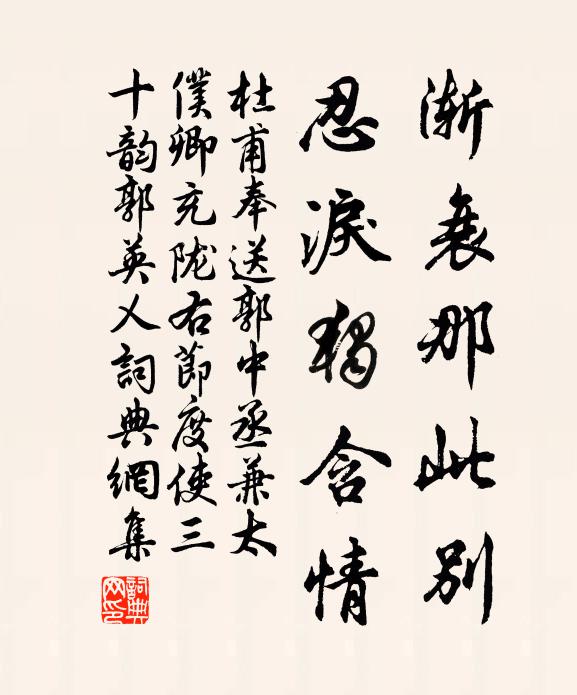 漸衰那此別
忍淚獨含情
杜甫奉送郭中丞兼太
僕卿充陇右節度使三
十韵郭英乂詞典網集
詞典
网印